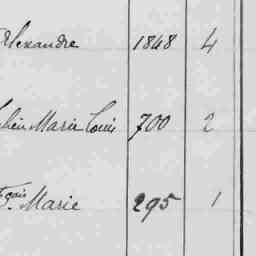 Alexandre 1848 4
Marie Louis 700 2
çois Marie 295 1